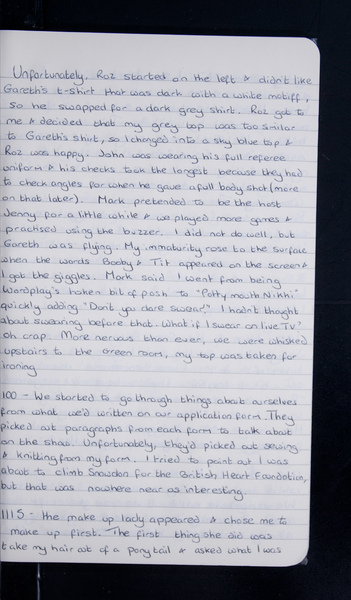 Unfortunately, Roz started on the left & didn't like
Gareth's t-shirt that was dark with a white motiff,
so he swapped for a dark grey shirt. Roz got to
me & decided that my grey top was too similar
to Gareth's shirt, so I changed into a sky blue top &
Roz was happy. John was wearing his full referee
uniform & his checks took the longest because they had
to check angles for when he gave a full body shot (more
on that later). Mark pretended to be the host
Jenny for a little while & we played more games &
practised using the buzzer. I did not do well, but
Gareth was flying. My immaturity rose to the surface
when the words Booby & Tit appeared on the screen &
I got the giggles. Mark said I went from being
Wordplay's token bit of posh to "Potty mouth Nikki"
quickly adding "Don't you dare swear!" I hadn't thought
about swearing before that. What if I swear on live TV?
Oh crap. More nervous than ever, we were whisked
upstairs to the Green room, my top was taken for
ironing
100 - We started to go through things about ourselves
from what we'd written on our application form. They
picked out paragraphs from each form to talk about
on the show. Unfortunately, they'd picked out sewing
& knitting from my form. I tried to point out I was
about to climb Snowdon for the British Heart Foundation,
but that was nowhere near as interesting.
1115 - The make up lady appeared & chose me to
make up first. The first thing she did was
take my hair out of a ponytail & asked what I was